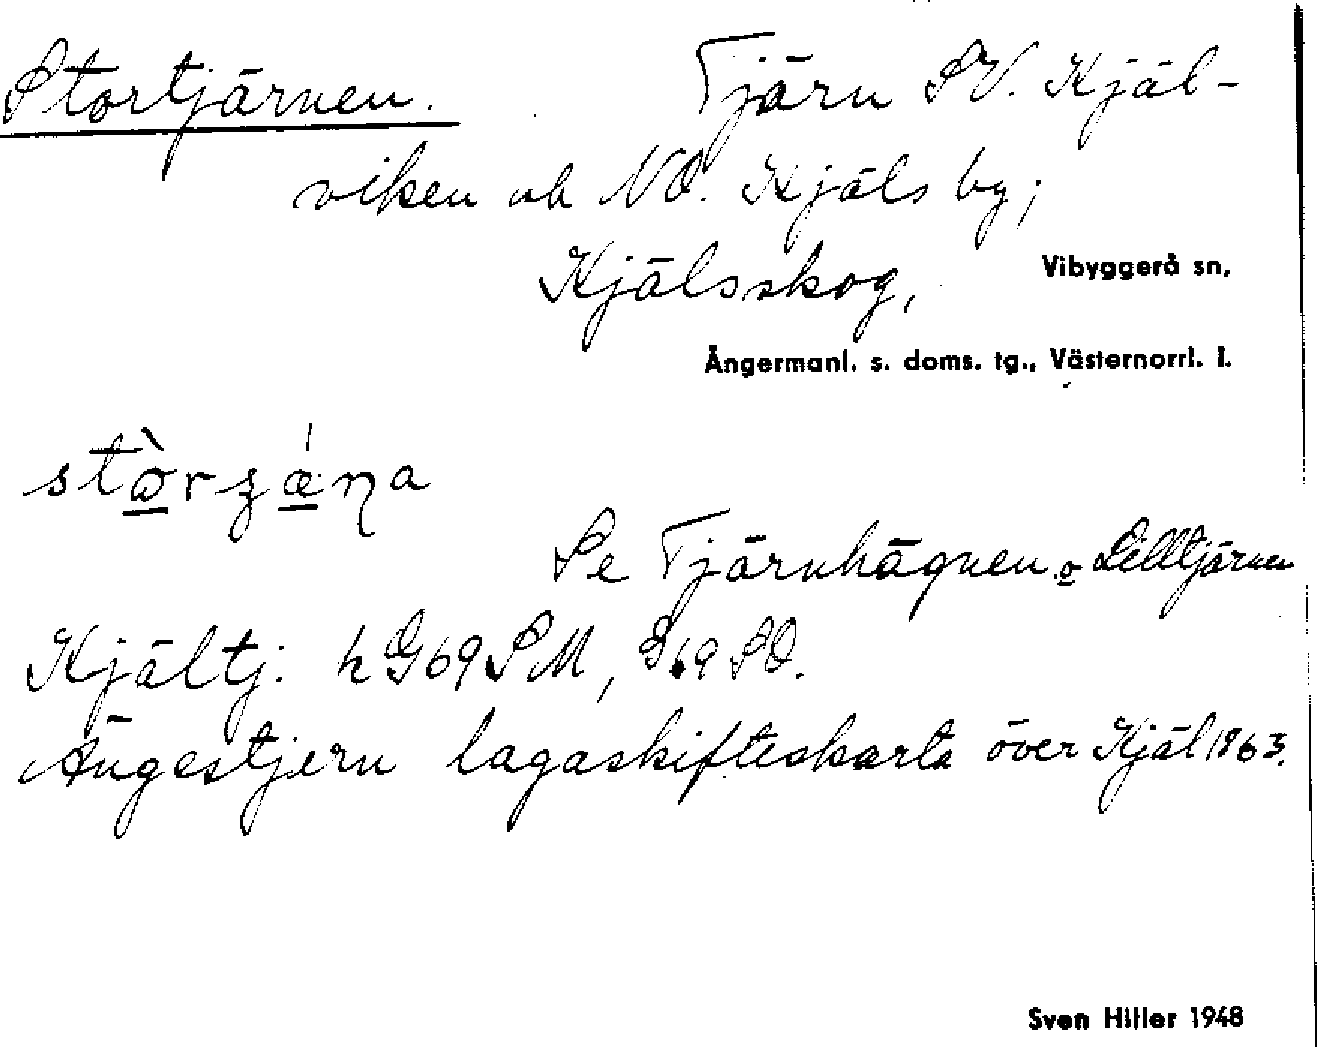 Stortjärnen. Tjärn SV. Kjäl-
viken och NO. Kjäls by;
Kjälsskog, Vibyggerå sn,
Ångermanl. s. doms. tg., Västernorrl. l.
Se Tjärnhägnen o Lilltjärnen
Kjältj: h G69 SM, G69 SO.
Ängestjern lagaskifteskarta över Kjäl 1863.
Sven Hiller 1948